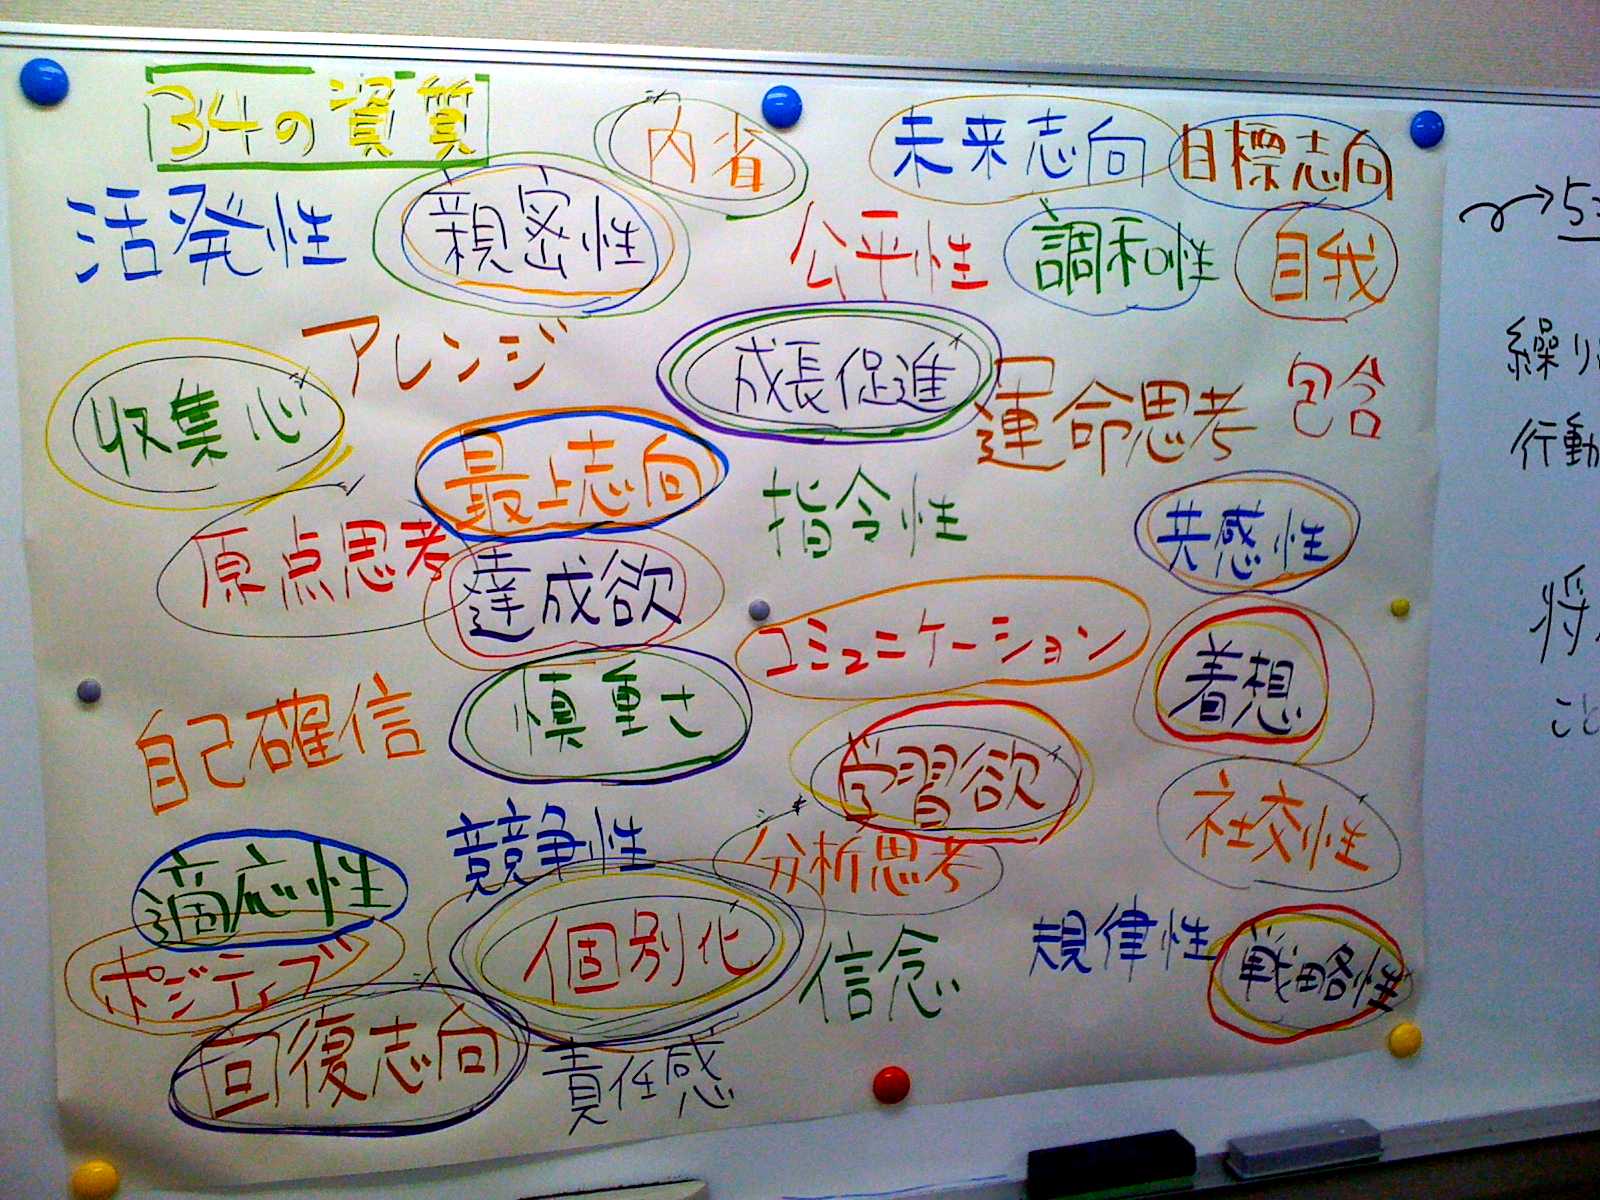 34の資質
内省
未来志向
目標志向
活発性
親密性
公平性
調和性
自我
アレンジ
収集心
成長促進
運命思考
包含
最上志向
指令性
共感性
原点思考
達成欲
コミュニケーション
着想
自己確信
慎重さ
学習欲
社交性
競争性
分析思考
適応性
個別化
信念
規律性
戦略性
ポジティブ
回復志向
責任感
繰り
行動
将
こと